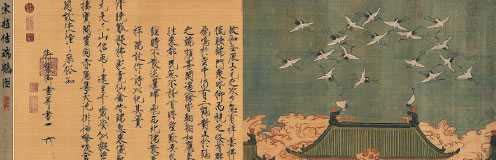 政和壬辰上元之次夕忽有祥雲拂鬱
低映端門衆皆仰而視之倏有羣鶴
飛鳴於空中仍有二鶴對止於鴟
尾之端頗甚閒適餘皆翱翔如應奏節
往來都民無不稽首瞻望歎異久之
經時不散迤邐歸飛西北隅散感茲
祥瑞故作詩以紀其實
清曉觚稜拂彩霓仙禽告瑞忽來儀飄飄
元是三山侶兩兩還呈千歲姿似擬碧鸞
棲寶閣豈同赤雁集天池徘徊嘹唳當
丹闕故使憧憧庶俗知
御製御畫并書
宋趙佶瑞鶴圖